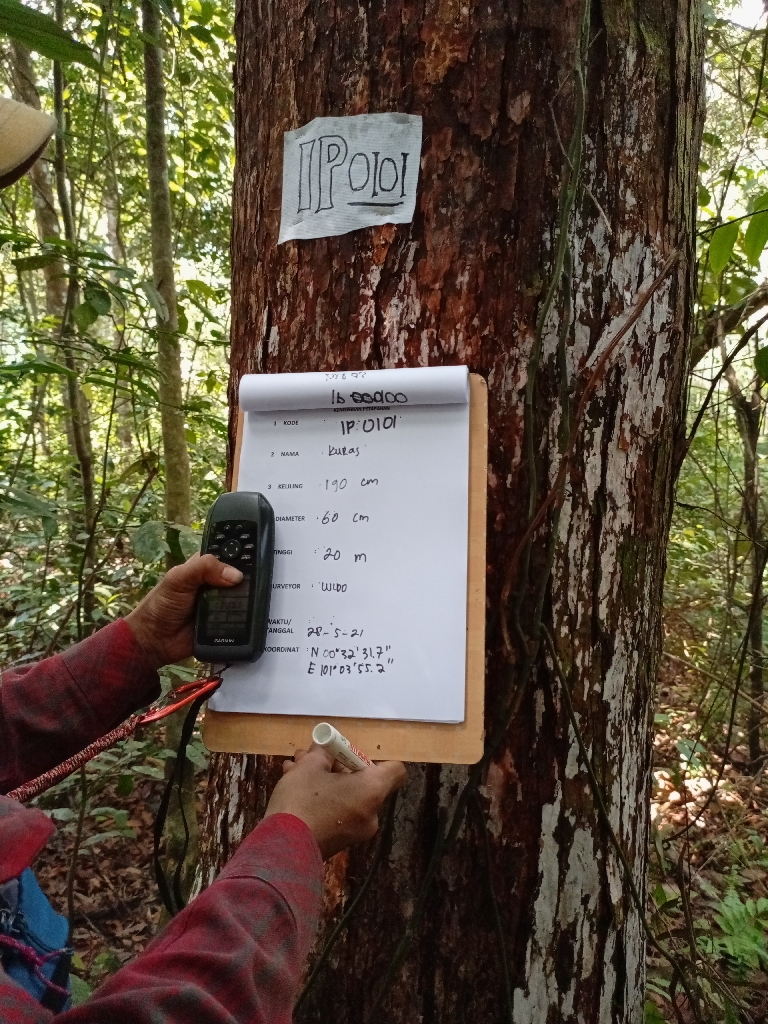 IP0101
1 KODE IP.0101
2 NAMA : Kuras
3 KELILING : 190 cm
DIAMETER : 60 cm
TINGGI : 20 m
URVEYOR : WIDO
WAKTU/
TANGGAL 28-5-21
KOORDINAT : N 00°32'31.7"
E 101°03'55.2"
GARMIN